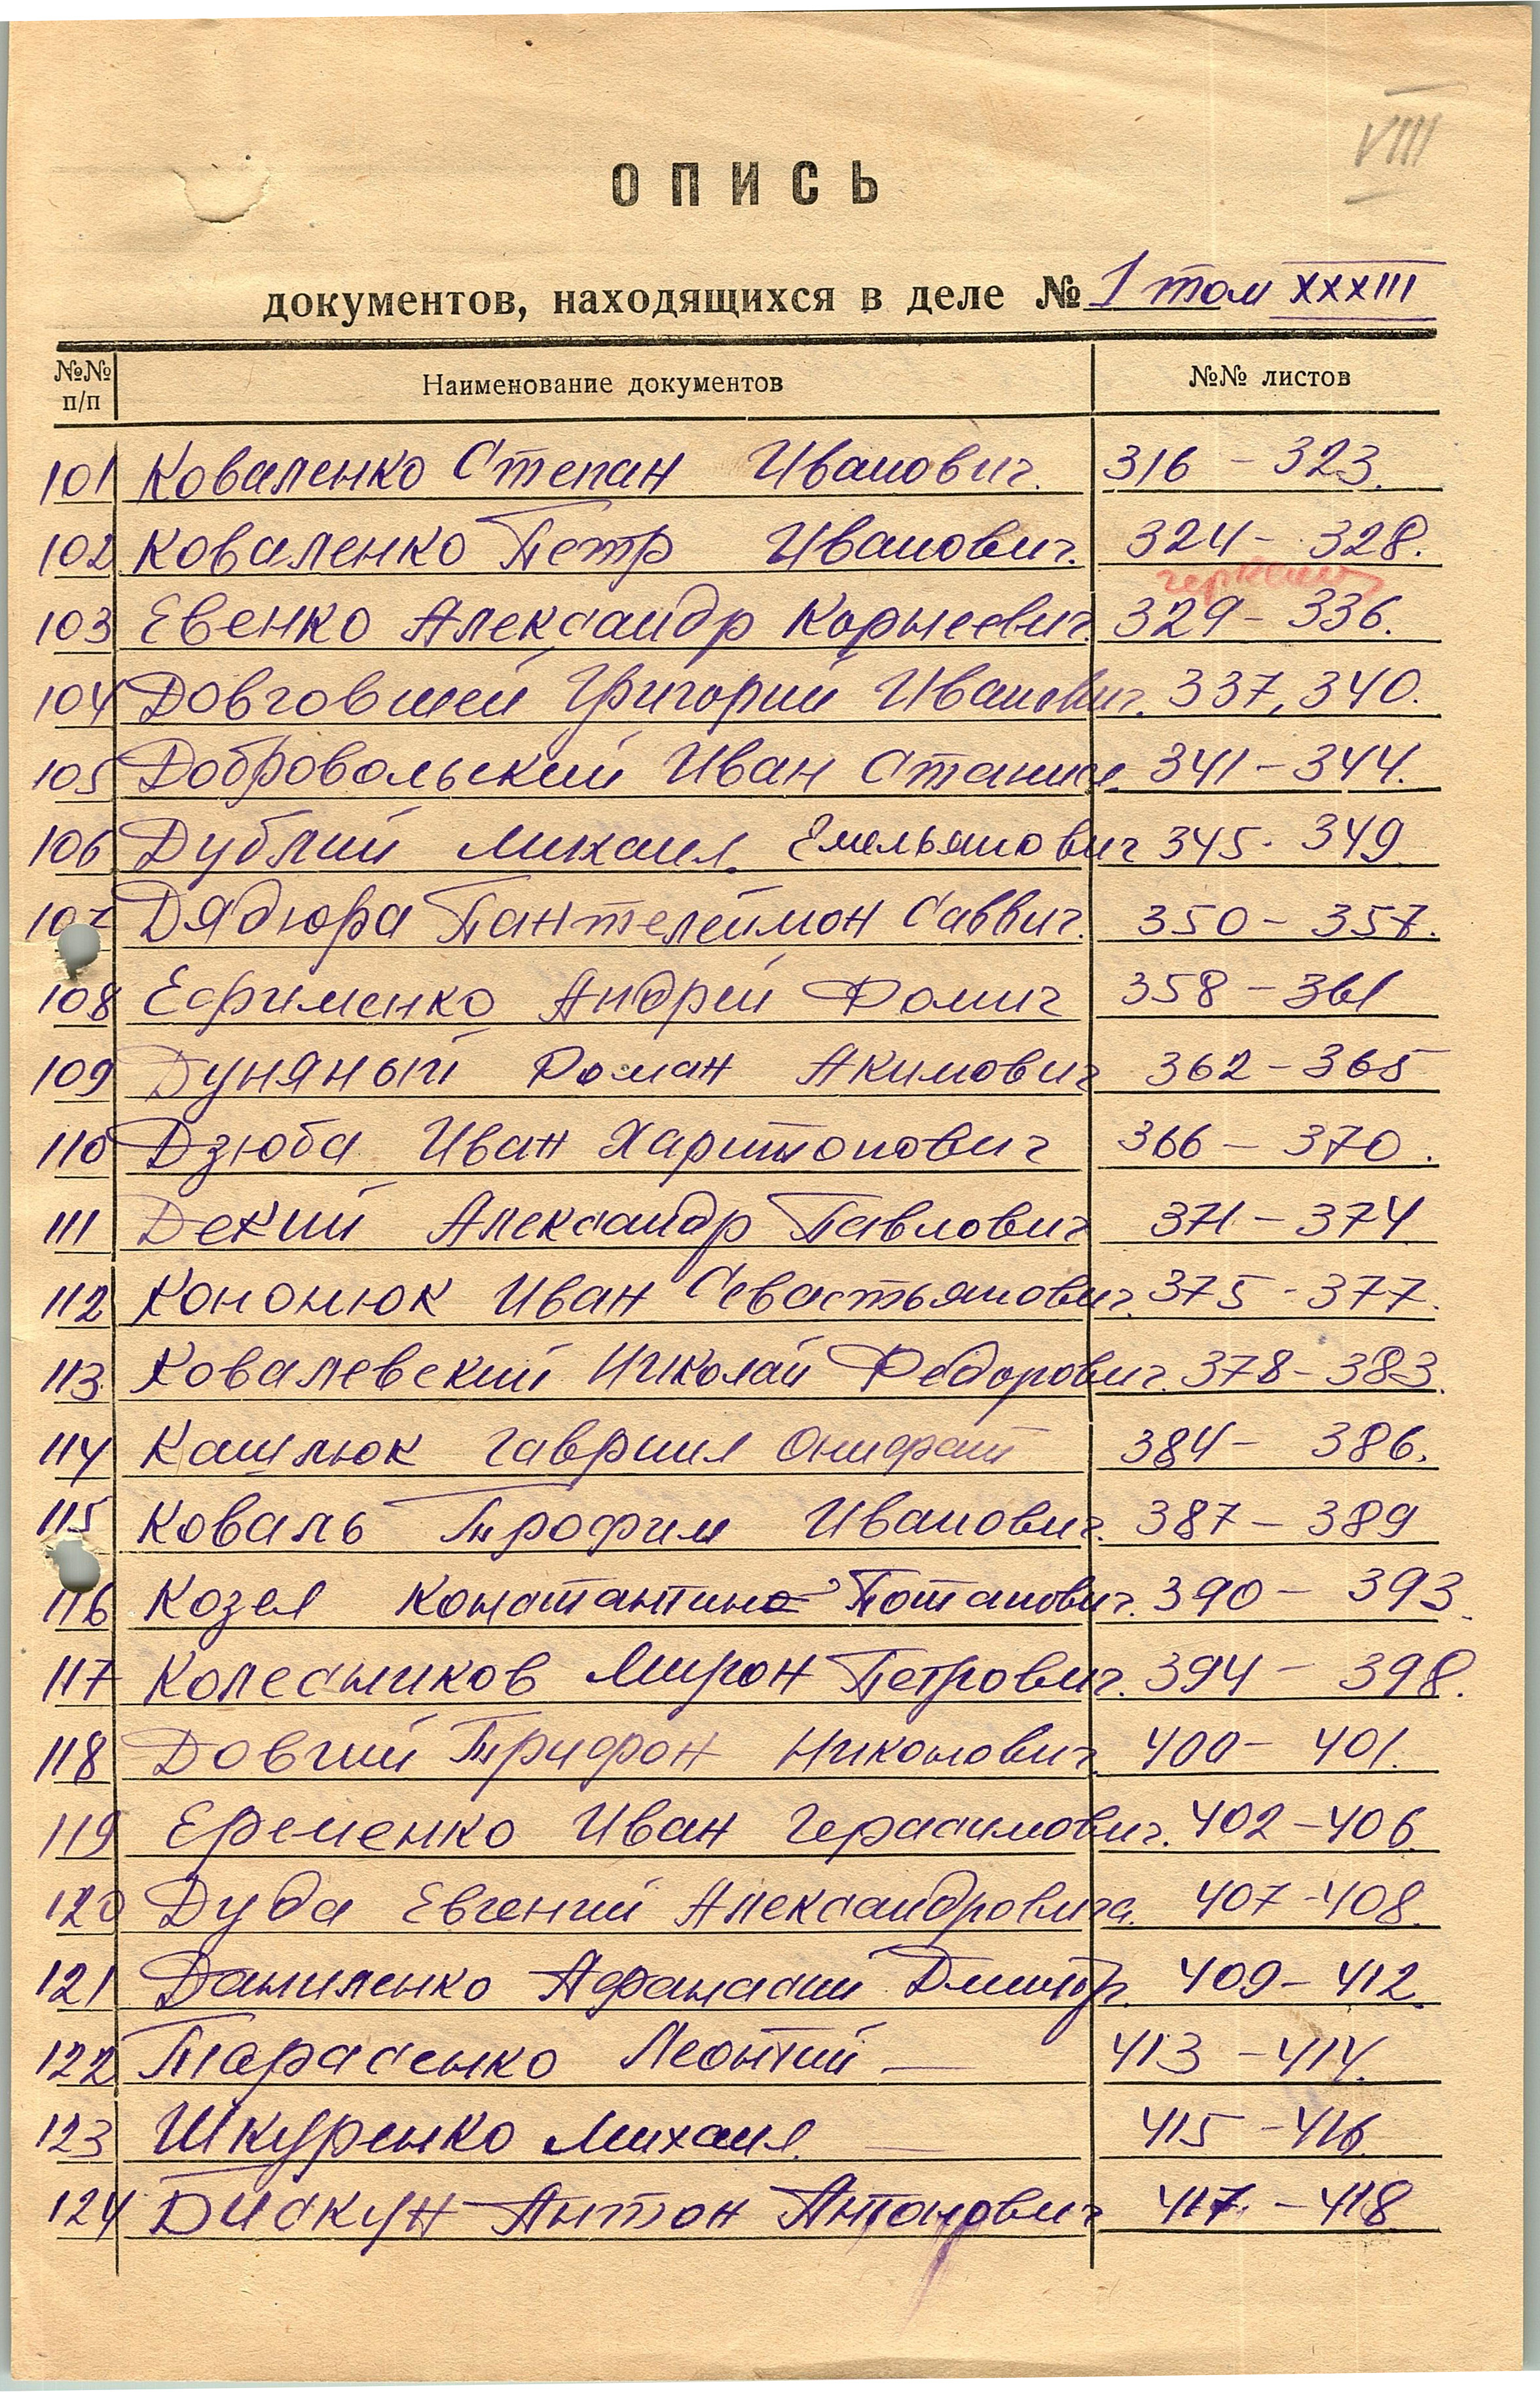 VIII
ОПИСЬ
документов, находящихся в деле № 1 том XXXIII
№№ п/п Наименование документов №№ листов
101 Коваленко Степан Иванович. 316 - 323.
102 Коваленко Петр Иванович. 324 - 328.
103 Евенко Александр Корнеевич. 329 - 336.
104 Довговшей Григорий Иванович. 337, 340.
105 Добровольский Иван Станисл. 341 - 344.
106 Дублий Михаил Емельянович 345 - 349
107 Дядюра Пантелеймон Саввич. 350 - 357.
108 Ефименко Андрей Фомич 358 - 361
109 Дуняный Роман Акимович 362 - 365
110 Дзюба Иван Харитонович 366 - 370.
111 Декий Александр Павлович 371 - 374
112 Кононюк Иван Севастьянович. 375 - 377.
113 Ковалевский Николай Федорович. 378 - 383.
114 Кашлюк Гавриил Онифрат 384 - 386.
115 Коваль Трофим Иванович. 387 - 389
116 Козел Константин Потапович. 390 - 393.
117 Колесников Мирон Петрович. 394 - 398.
118 Довгий Трифон Никонович. 400 - 401.
119 Еременко Иван Герасимович. 402 - 406
120 Дуда Евгений Александровича. 407 - 408.
121 Даниленко Афанасий Дмитр. 409 - 412.
122 Тарасенко Леонтий — 413 - 414.
123 Шкуренко Михаил — 415 - 416
124 Бискун Антон Антонович 417 - 418